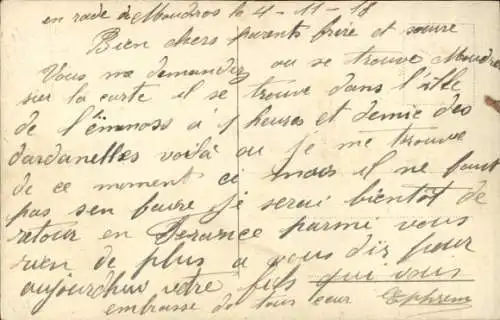 en rade de Moudros le 4-11-18
Bien chers parents frere et soeure
Vous me demandez ou se trouve Moudros
sur la carte il se trouve dans l'ille
de l'émnoss a 1 heures et demie des
dardanelles voilà ou je me trouve
de ce moment ci mais il ne faut
pas sen faire je serai bientôt de
retour en France parmi vous
rien de plus a vous dir pour
aujourdhui votre fils qui vous
embrasse de tous coeur Ephrem